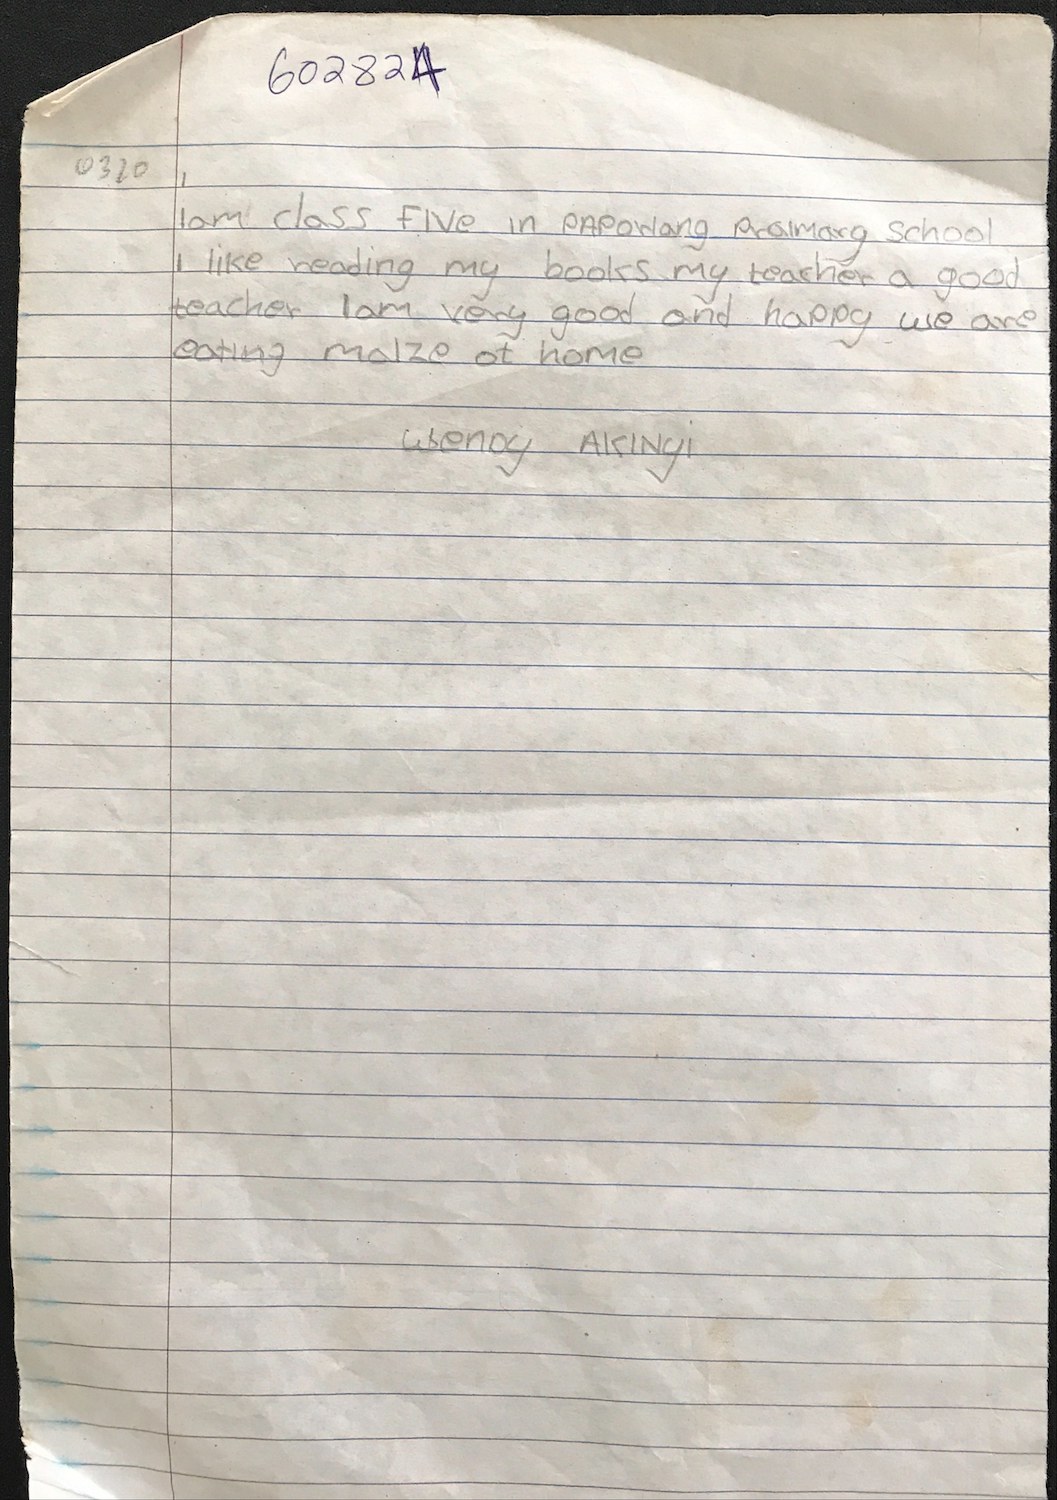 602824
0320
Iam class FIVe in PAPOWang Praimary School
I like reading my books my teacher a good
teacher Iam very good and happy we are
eating maize at home
AKINyi